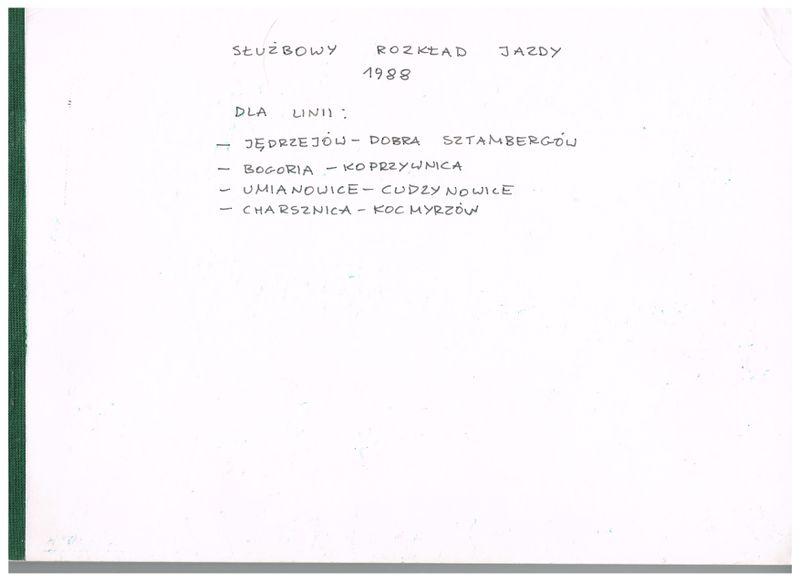 SŁUŻBOWY ROZKŁAD JAZDY
1988
DLA LINII:
- JĘDRZEJÓW - DOBRA SZTAMBERGÓW
- BOGORIA - KOPRZYWNICA
- UMIANOWICE - CUDZYNOWICE
- CHARSZNICA - KOCMYRZÓW